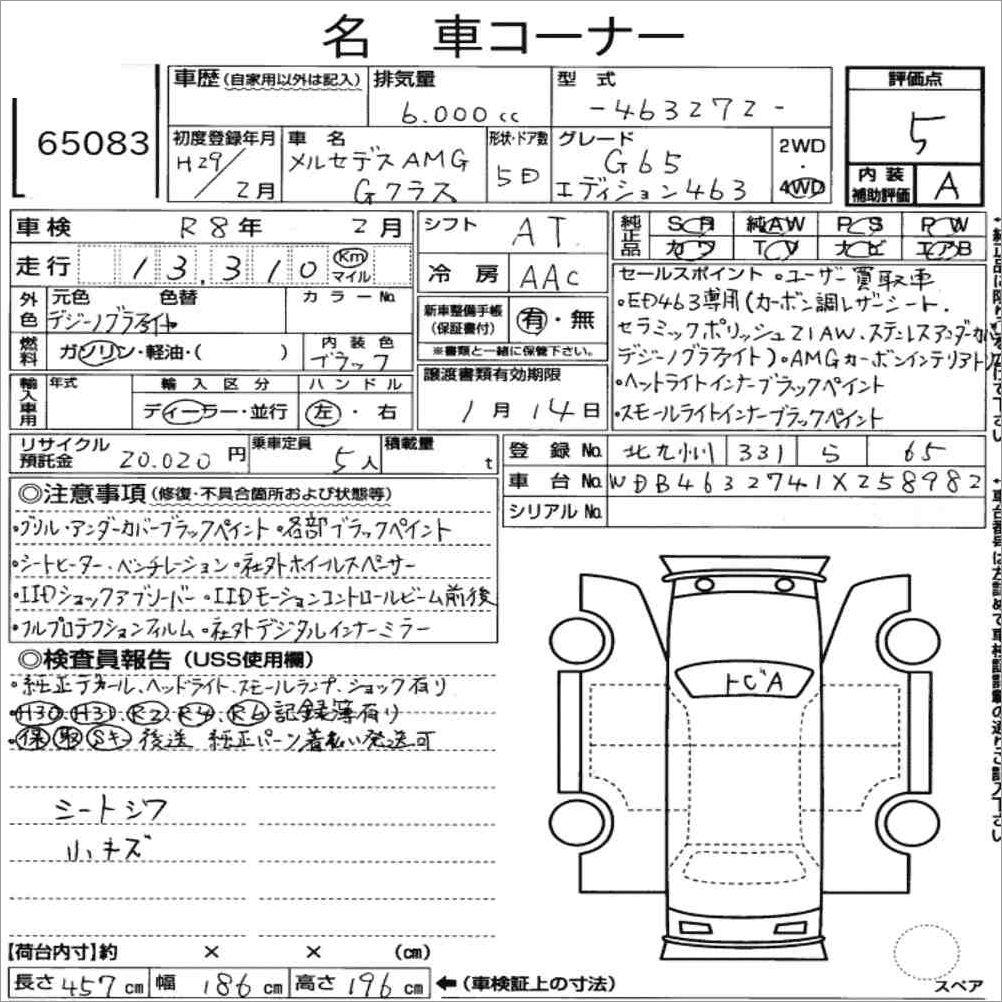 名 車コーナー
65083
車歴(自家用以外は記入)
排気量
6.000cc
型式
-463272-
評価点
5
初度登録年月
H29/2月
車名
メルセデスAMG
Gクラス
形状・ドア数
5D
グレード
G65
エディション463
2WD
・
4WD
内装
補助評価
A
車検
R8年 2月
走行
13,310
Km
マイル
シフト
AT
冷房
AAC
純正品
SR 純AW PS PW
カワ TV ナビ エアB
外色
元色 色替
デジーノグラファイト
カラーNo.
燃料
ガソリン・軽油・( )
内装色
ブラック
新車整備手帳
(保証書付)
有・無
※書類と一緒に保管下さい。
輸入車用
年式
輸入区分
ディーラー・並行
ハンドル
左・右
譲渡書類有効期限
1月14日
セールスポイント ・ユーザー買取車
・ED463専用(カーボン調レザーシート.
セラミックポリッシュ21AW.ステンレスアンダーカバー
デジーノグラファイト)・AMGカーボンインテリアトリム
・ヘッドライトインナーブラックペイント
・スモールライトインナーブラックペイント
リサイクル
預託金
20.020円
乗車定員
5人
積載量
t
登録No.
北九州 331 ら 65
車台No.
WDB4632741X258982
シリアルNo.
◎注意事項(修復・不具合箇所および状態等)
・グリル・アンダーカバーブラックペイント・各部ブラックペイント
・シートヒーター.ベンチレーション・社外ホイールスペーサー
・IIDショックアブソーバー・IIDモーションコントロールビーム前後
・フルプロテクションフィルム・社外デジタルインナーミラー
◎検査員報告(USS使用欄)
・純正デカール、ヘッドライト、スモールランプ、ショック有り
・H30.H31.R2.R4.R6記録簿有り
・保 取 Sキ 後送 純正パーツ着払い発送可
シートシワ
小キズ
トビA
【荷台内寸】約 × × (cm)
長さ457cm 幅186cm 高さ196cm
←(車検証上の寸法)
スペア